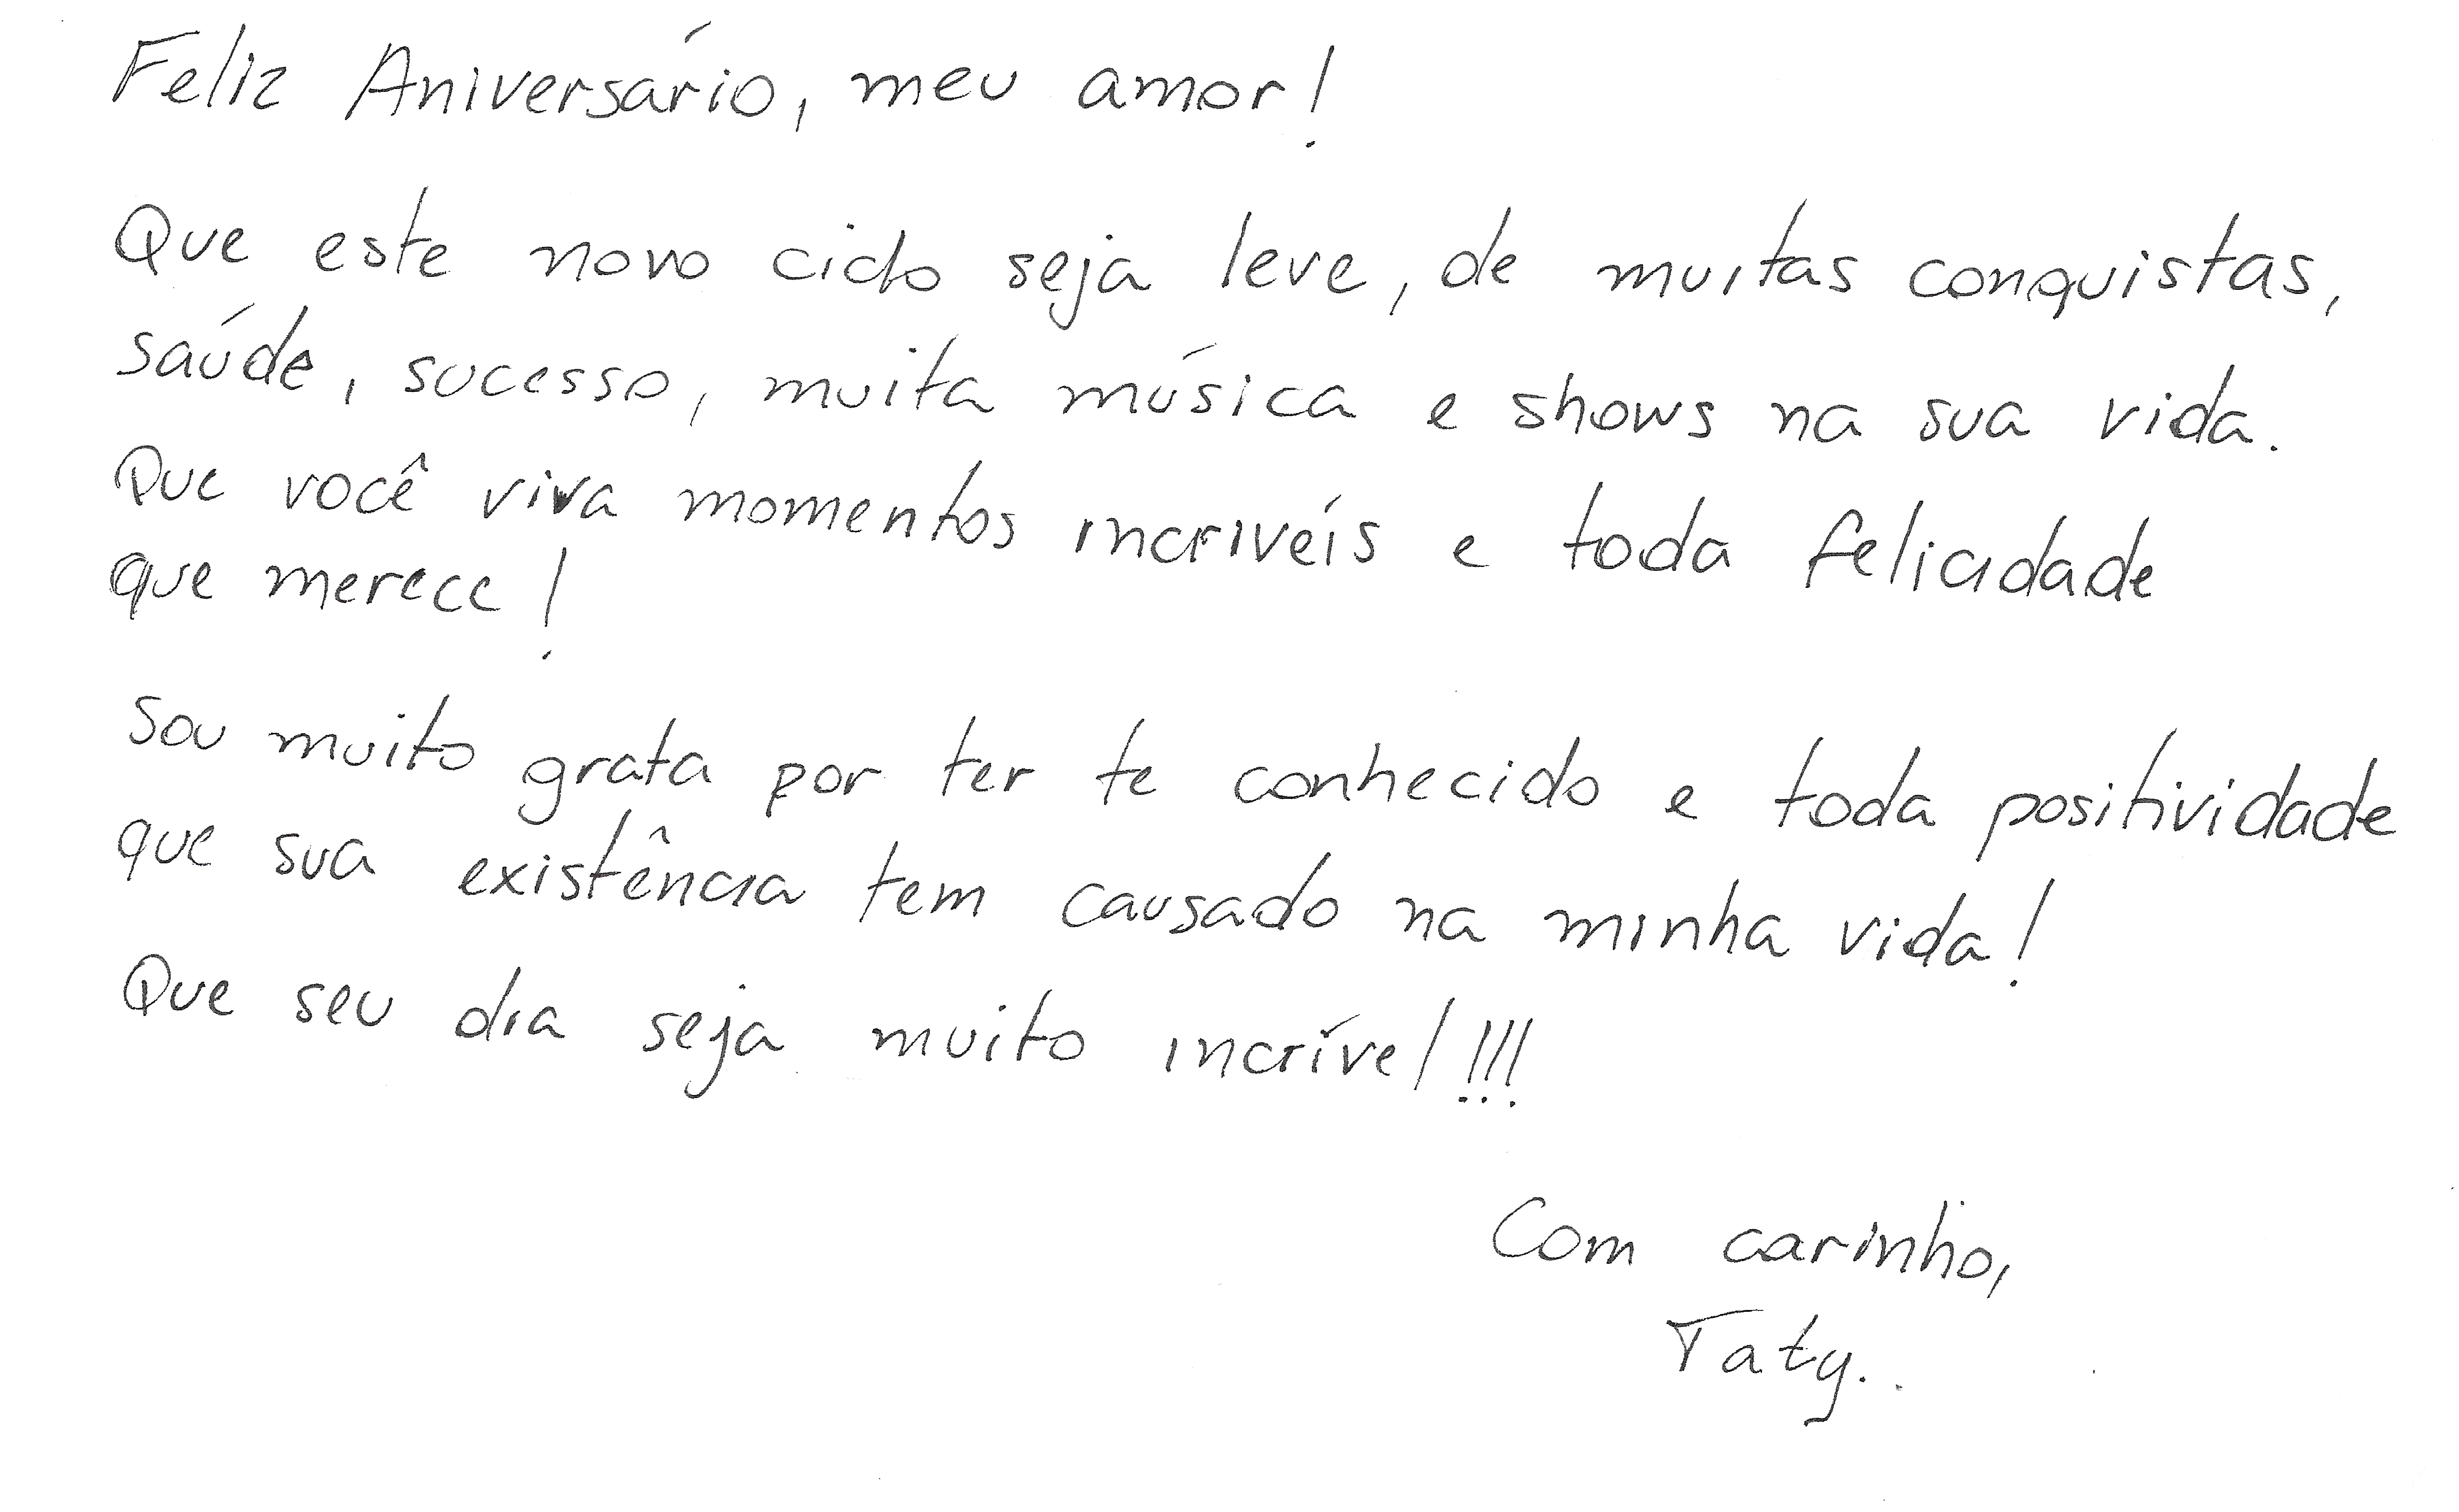 Feliz Aniversário, meu amor!
Que este novo ciclo seja leve, de muitas conquistas,
saúde, sucesso, muita música e shows na sua vida.
Que você viva momentos incrivéis e toda felicidade
que merece!
Sou muito grata por ter te conhecido e toda positividade
que sua existência tem causado na minha vida!
Que seu dia seja muito incrível!!!
Com carinho,
Taty..